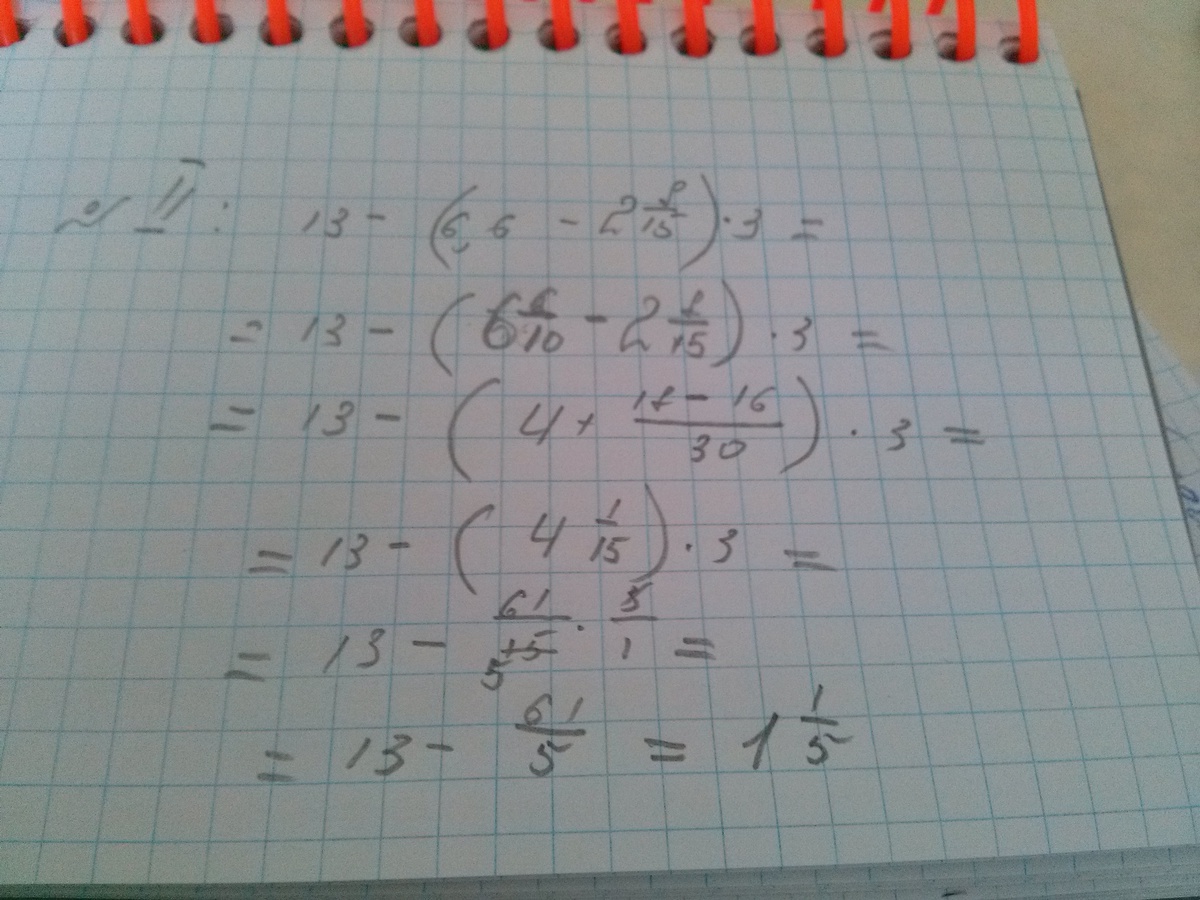 № II: 13 - (6,6 - 2 8/15) · 3 =
= 13 - (6 6/10 - 2 8/15) · 3 =
= 13 - (4 + (18 - 16)/30) · 3 =
= 13 - (4 1/15) · 3 =
= 13 - 61/15 5 · 3/1 =
= 13 - 61/5 = 1 1/5